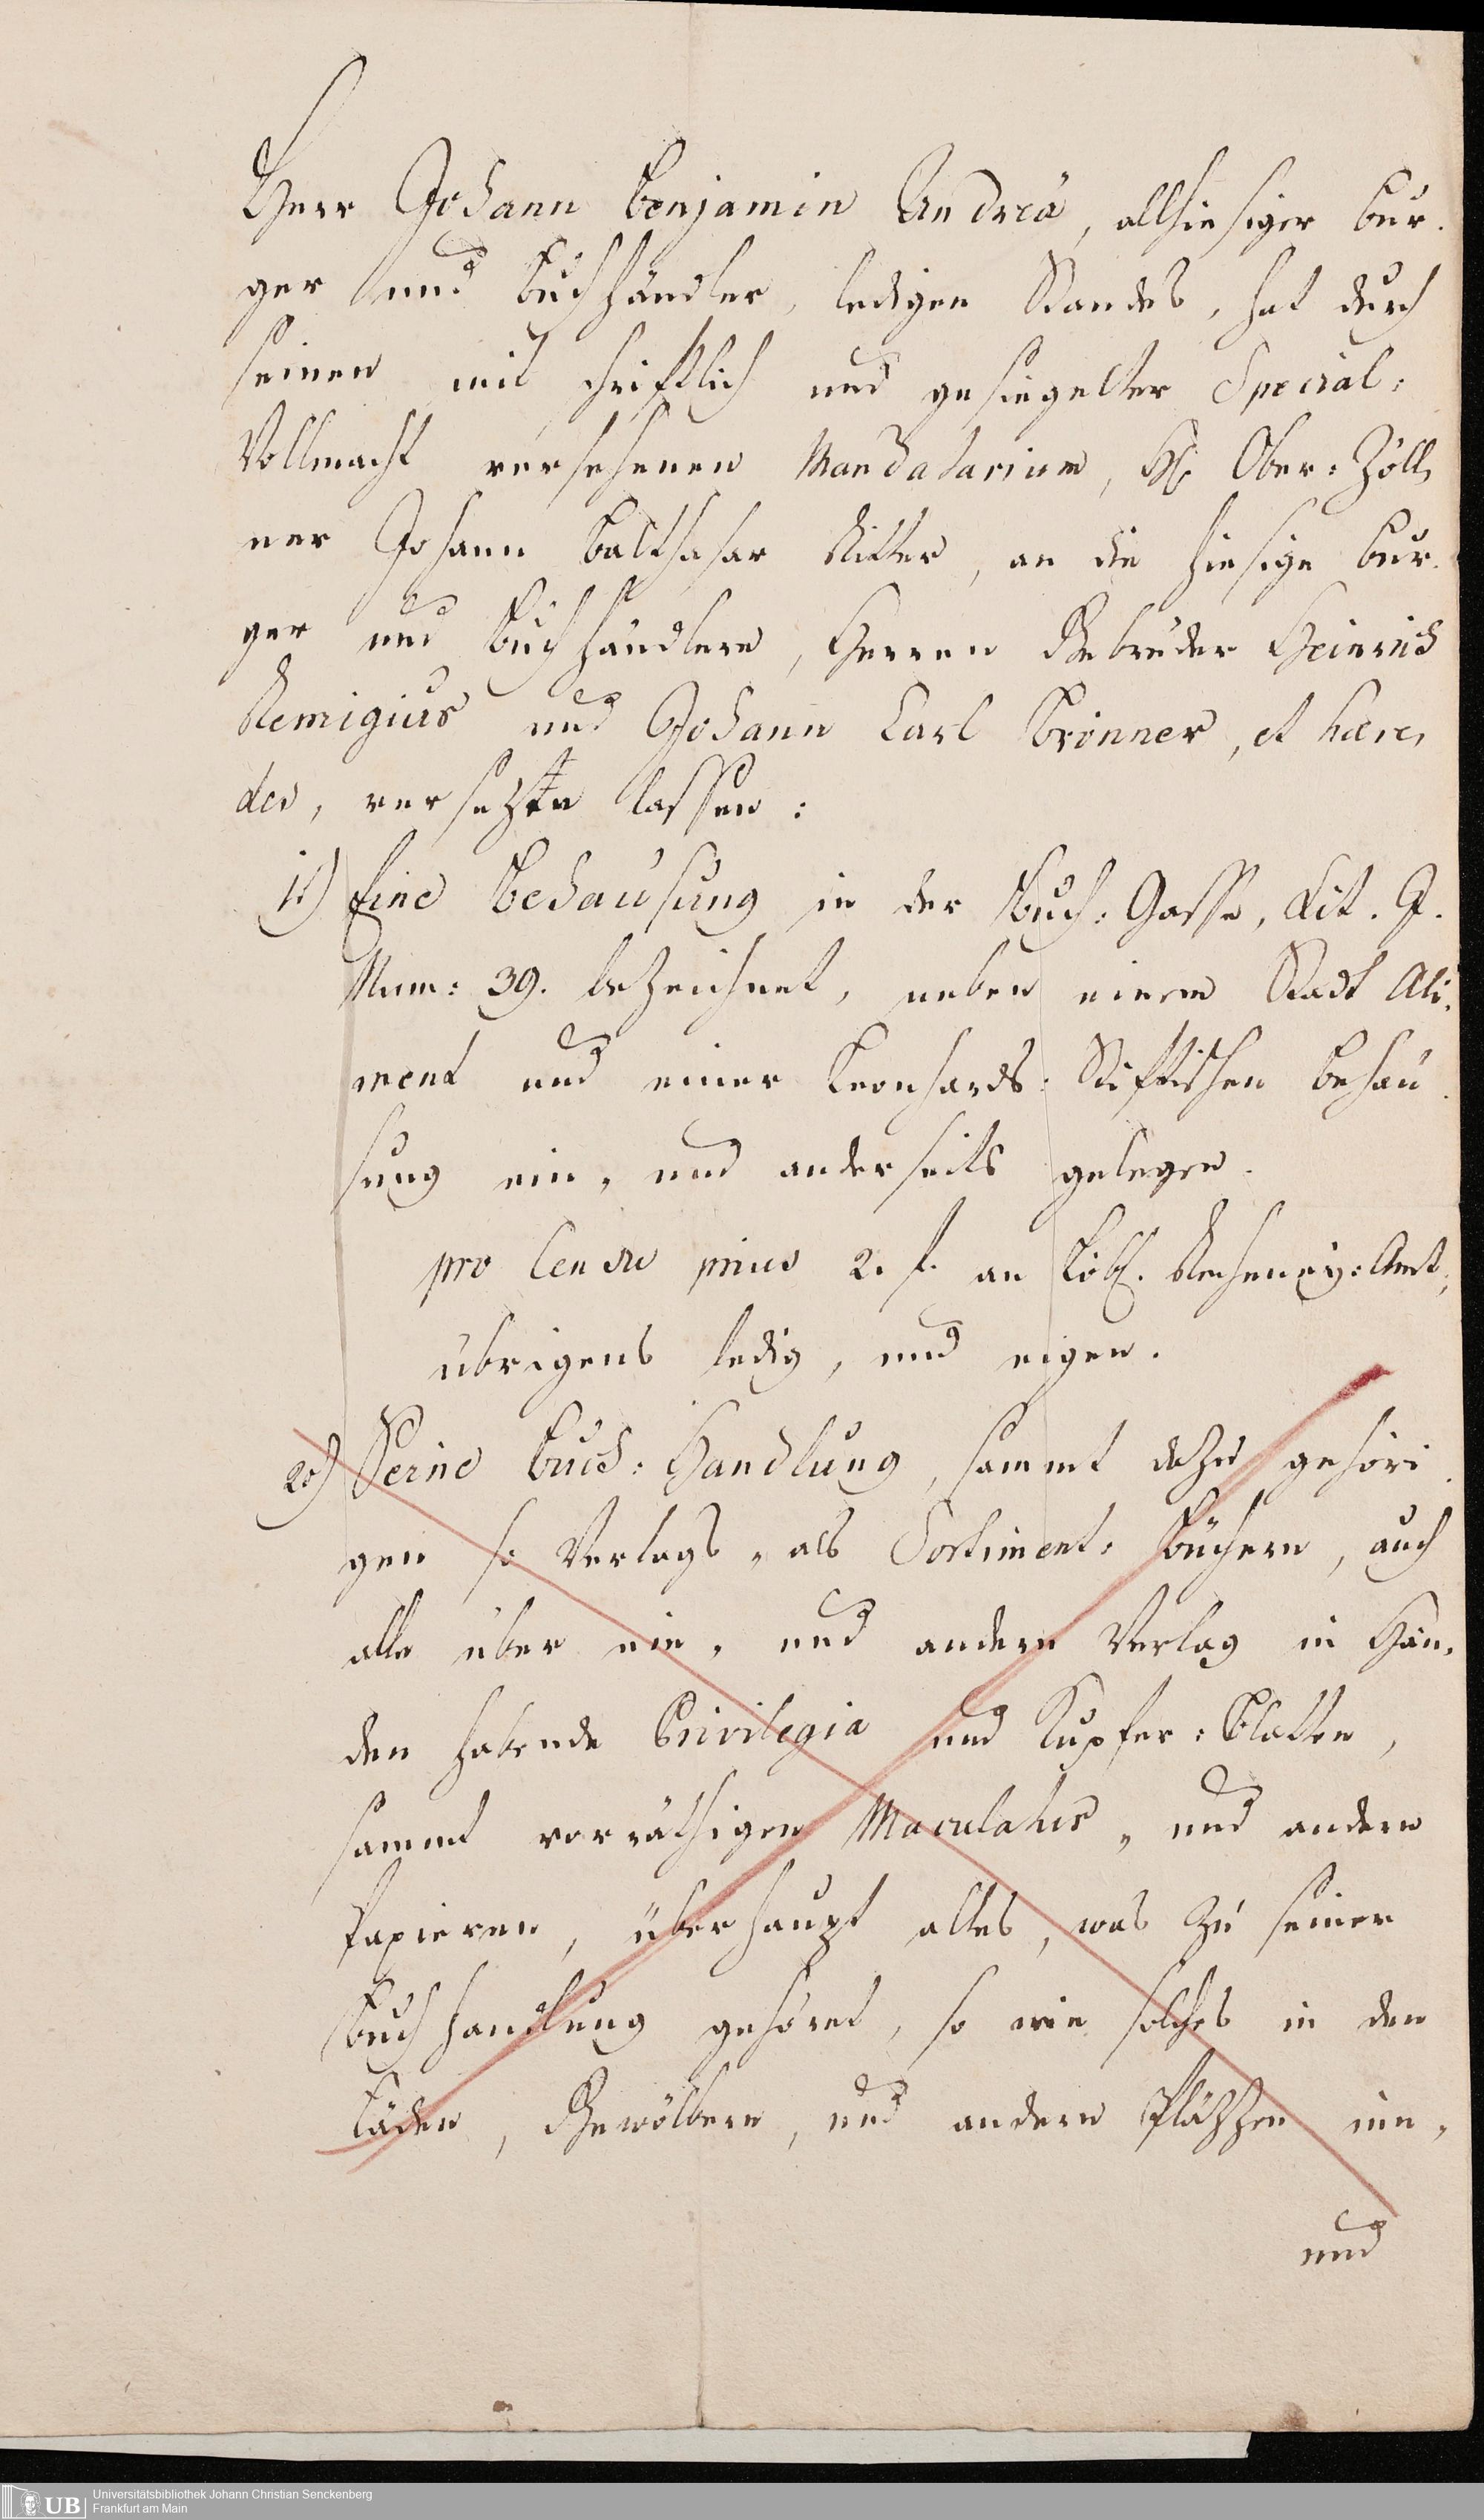 Herr Johann Benjamin Andreä, allhiesiger Bur-
ger und Buchhändler, ledigen Standes, hat durch
seinen mit schriftlich und gesiegelter Special-
Vollmacht versehenen Mandatarium, H. Ober-Zöll-
ner Johann Balthasar Ritter, an die hiesige Bur-
ger und Buchhändlere, Herren Gebrüder Heinrich
Remigius und Johann Carl Brönner, et hære-
des, versetzen lassen:
1.) Eine Behausung in der Buch-Gasse, Lit. J.
Num: 39. bezeichnet, neben einem Stadt Ali-
ment und einer Leonhards-Stiftischen Behau-
sung ein- und anderseits gelegen.
pro Censu prius 2. f. an Löbl. Recheney-Amt,
übrigens ledig, und eigen.
2.) Seine Buch-Handlung, sammt dazu gehöri-
gen so Verlags- als Sortiment-Büchern, auch
alle über ein- und andern Verlag in Hän-
den habende Privilegia und Kupfer-Platten,
sammt vorräthigen Maculatur- und andern
Papieren, überhaupt alles, was zu seiner
Buchhandlung gehöret, so wie solches in den
Läden, Gewölbern, und andern Pläzzen inn-
und
UB
Universitätsbibliothek Johann Christian Senckenberg
Frankfurt am Main